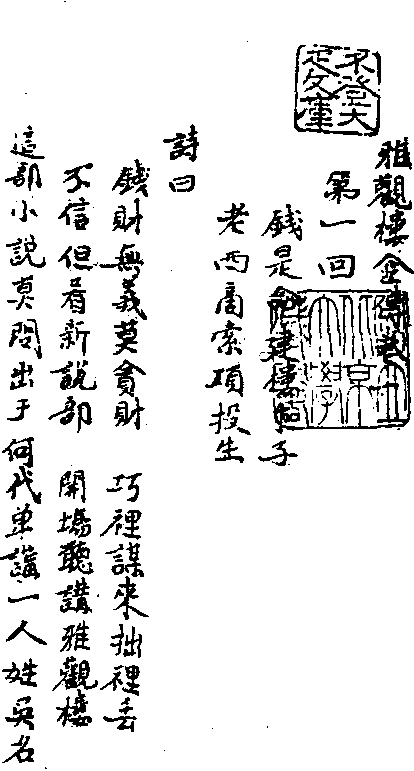 不登大
雅文庫
雅觀樓全傳卷之一
第一回
錢是命建樓子
老西商索投生
詩曰
錢財無義莫貪財 巧裡謀來拙裡丟
不信但看新說部 開場聽講雅觀樓
這部小說莫問出于何代單講一人姓吳名